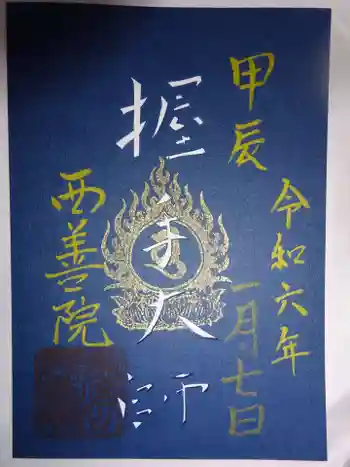 甲辰
令和六年
一月七日
握手大師
西善院